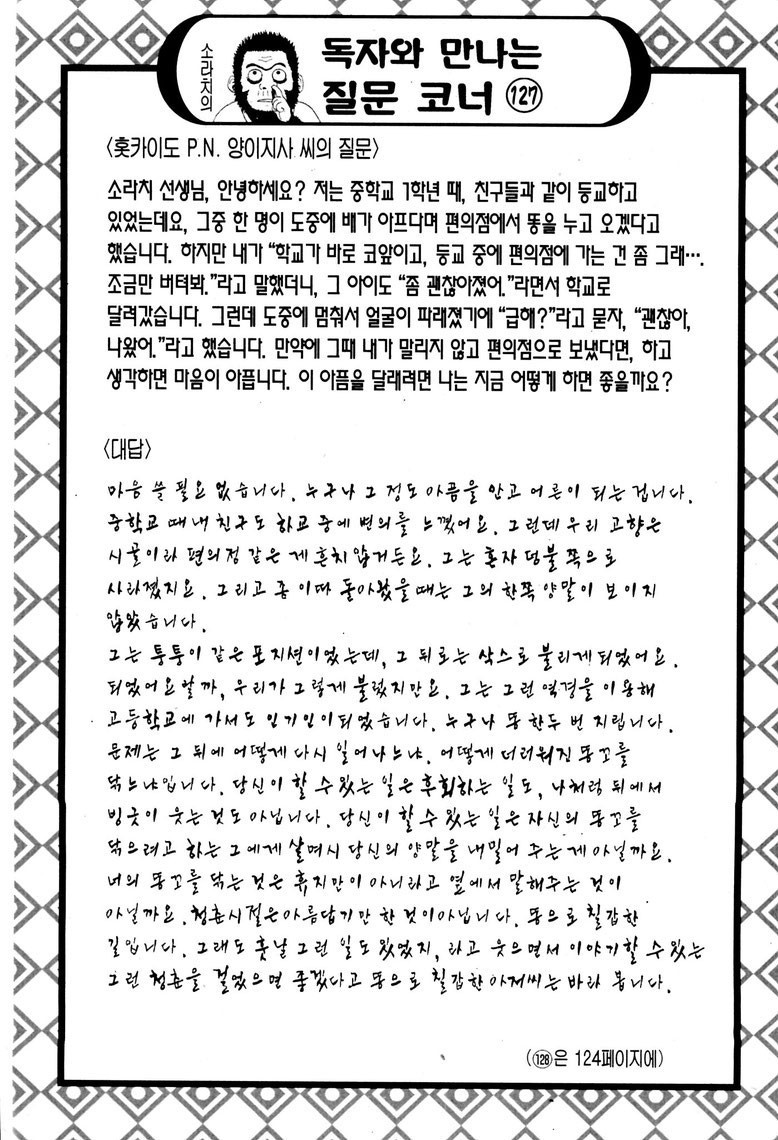 소라치의
독자와 만나는
질문 코너 127
〈홋카이도 P.N. 양이지사 씨의 질문〉
소라치 선생님, 안녕하세요? 저는 중학교 1학년 때, 친구들과 같이 등교하고
있었는데요, 그중 한 명이 도중에 배가 아프다며 편의점에서 똥을 누고 오겠다고
했습니다. 하지만 내가 “학교가 바로 코앞이고, 등교 중에 편의점에 가는 건 좀 그래….
조금만 버텨봐.”라고 말했더니, 그 아이도 “좀 괜찮아졌어.”라면서 학교로
달려갔습니다. 그런데 도중에 멈춰서 얼굴이 파래졌기에 “급해?”라고 묻자, “괜찮아,
나왔어.”라고 했습니다. 만약에 그때 내가 말리지 않고 편의점으로 보냈다면, 하고
생각하면 마음이 아픕니다. 이 아픔을 달래려면 나는 지금 어떻게 하면 좋을까요?
〈대답〉
마음 쓸 필요 없습니다. 누구나 그 정도 아픔을 안고 어른이 되는 겁니다.
중학교 때 내 친구도 하교 중에 변의를 느꼈어요. 그런데 우리 고향은
시골이라 편의점 같은 게 흔치 않거든요. 그는 혼자 덤불 쪽으로
사라졌지요. 그리고 좀 이따 돌아왔을 때는 그의 한쪽 양말이 보이지
않았습니다.
그는 퉁퉁이 같은 포지션이었는데, 그 뒤로는 삭스로 불리게 되었어요.
되었어요랄까, 우리가 그렇게 불렀지만요. 그는 그런 역경을 이용해
고등학교에 가서도 인기인이 되었습니다. 누구나 똥 한두 번 지립니다.
문제는 그 뒤에 어떻게 다시 일어나느냐. 어떻게 더러워진 똥꼬를
닦느냐입니다. 당신이 할 수 있는 일은 후회하는 일도, 나처럼 뒤에서
빙긋이 웃는 것도 아닙니다. 당신이 할 수 있는 일은 자신의 똥꼬를
닦으려고 하는 그에게 살며시 당신의 양말을 내밀어 주는 게 아닐까요.
너의 똥꼬를 닦는 것은 휴지만이 아니라고 옆에서 말해주는 것이
아닐까요. 청춘시절은 아름답기만 한 것이 아닙니다. 똥으로 칠갑한
길입니다. 그래도 훗날 그런 일도 있었지, 라고 웃으면서 이야기할 수 있는
그런 청춘을 걸었으면 좋겠다고 똥으로 칠갑한 아저씨는 바라 봅니다.
(128은 124페이지에)